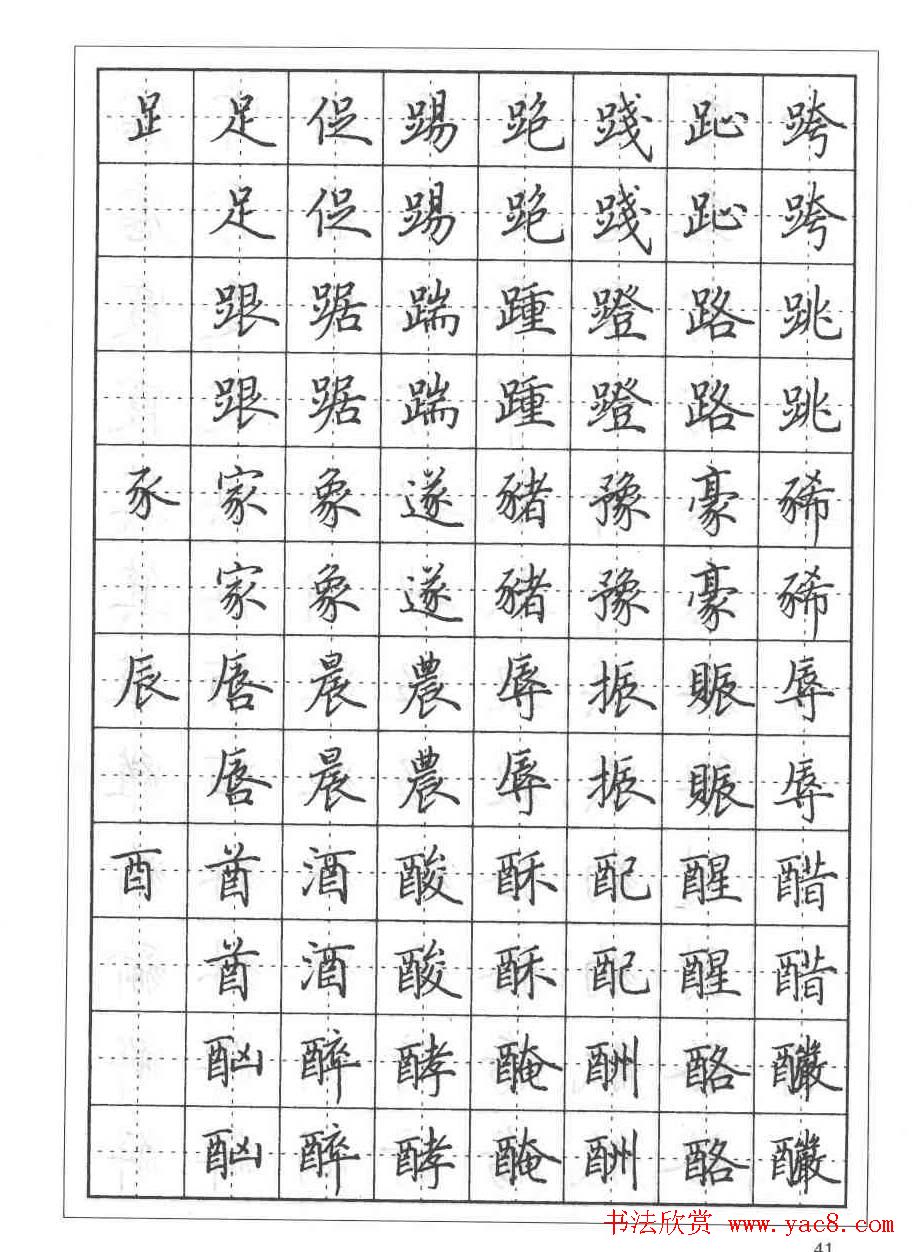 ⻊ 足 促 踢 跑 踐 趾 跨
足 促 踢 跑 踐 趾 跨
跟 踞 踹 踵 蹬 路 跳
跟 踞 踹 踵 蹬 路 跳
豕 家 象 遂 豬 豫 豪 豨
家 象 遂 豬 豫 豪 豨
辰 唇 晨 農 辱 振 賑 辱
唇 晨 農 辱 振 賑 辱
酉 酋 酒 酸 酥 配 醒 醋
酋 酒 酸 酥 配 醒 醋
酗 醉 酵 醃 酬 酪 釅
酗 醉 酵 醃 酬 酪 釅
书法欣赏 www.yac8.com
41